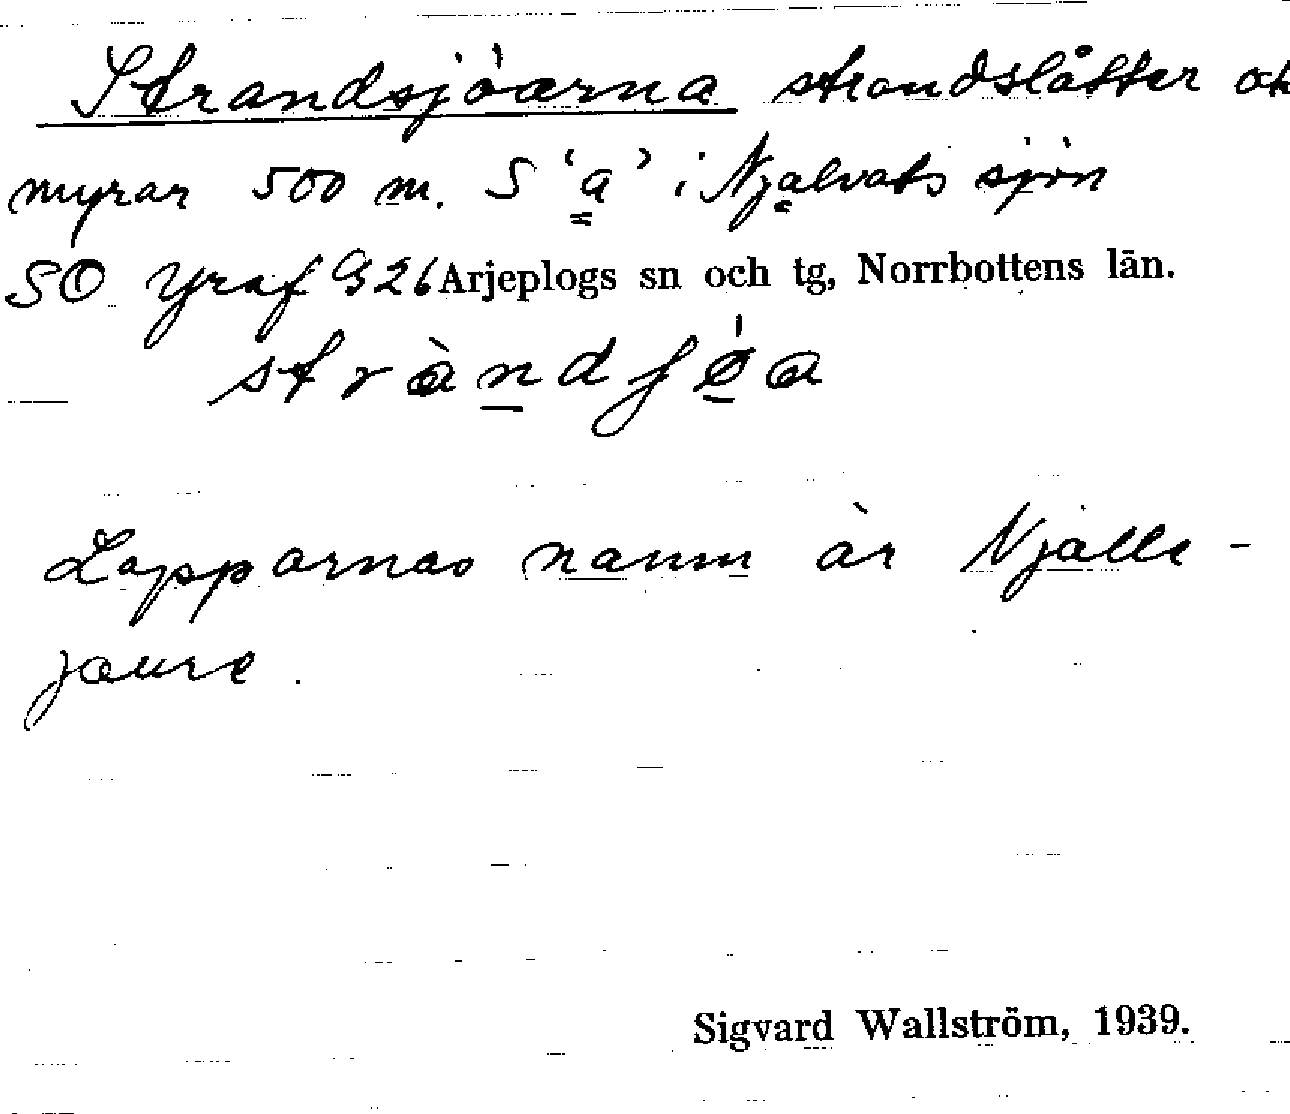 Strandsjöarna strandslåtter och
myrar 500 m. S 'a' i Njalvatssjön
SO Yraf G26 Arjeplogs sn och tg, Norrbottens län.
stràndʃǿa
Lapparnas namn är Njalle-
jaure.
Sigvard Wallström, 1939.